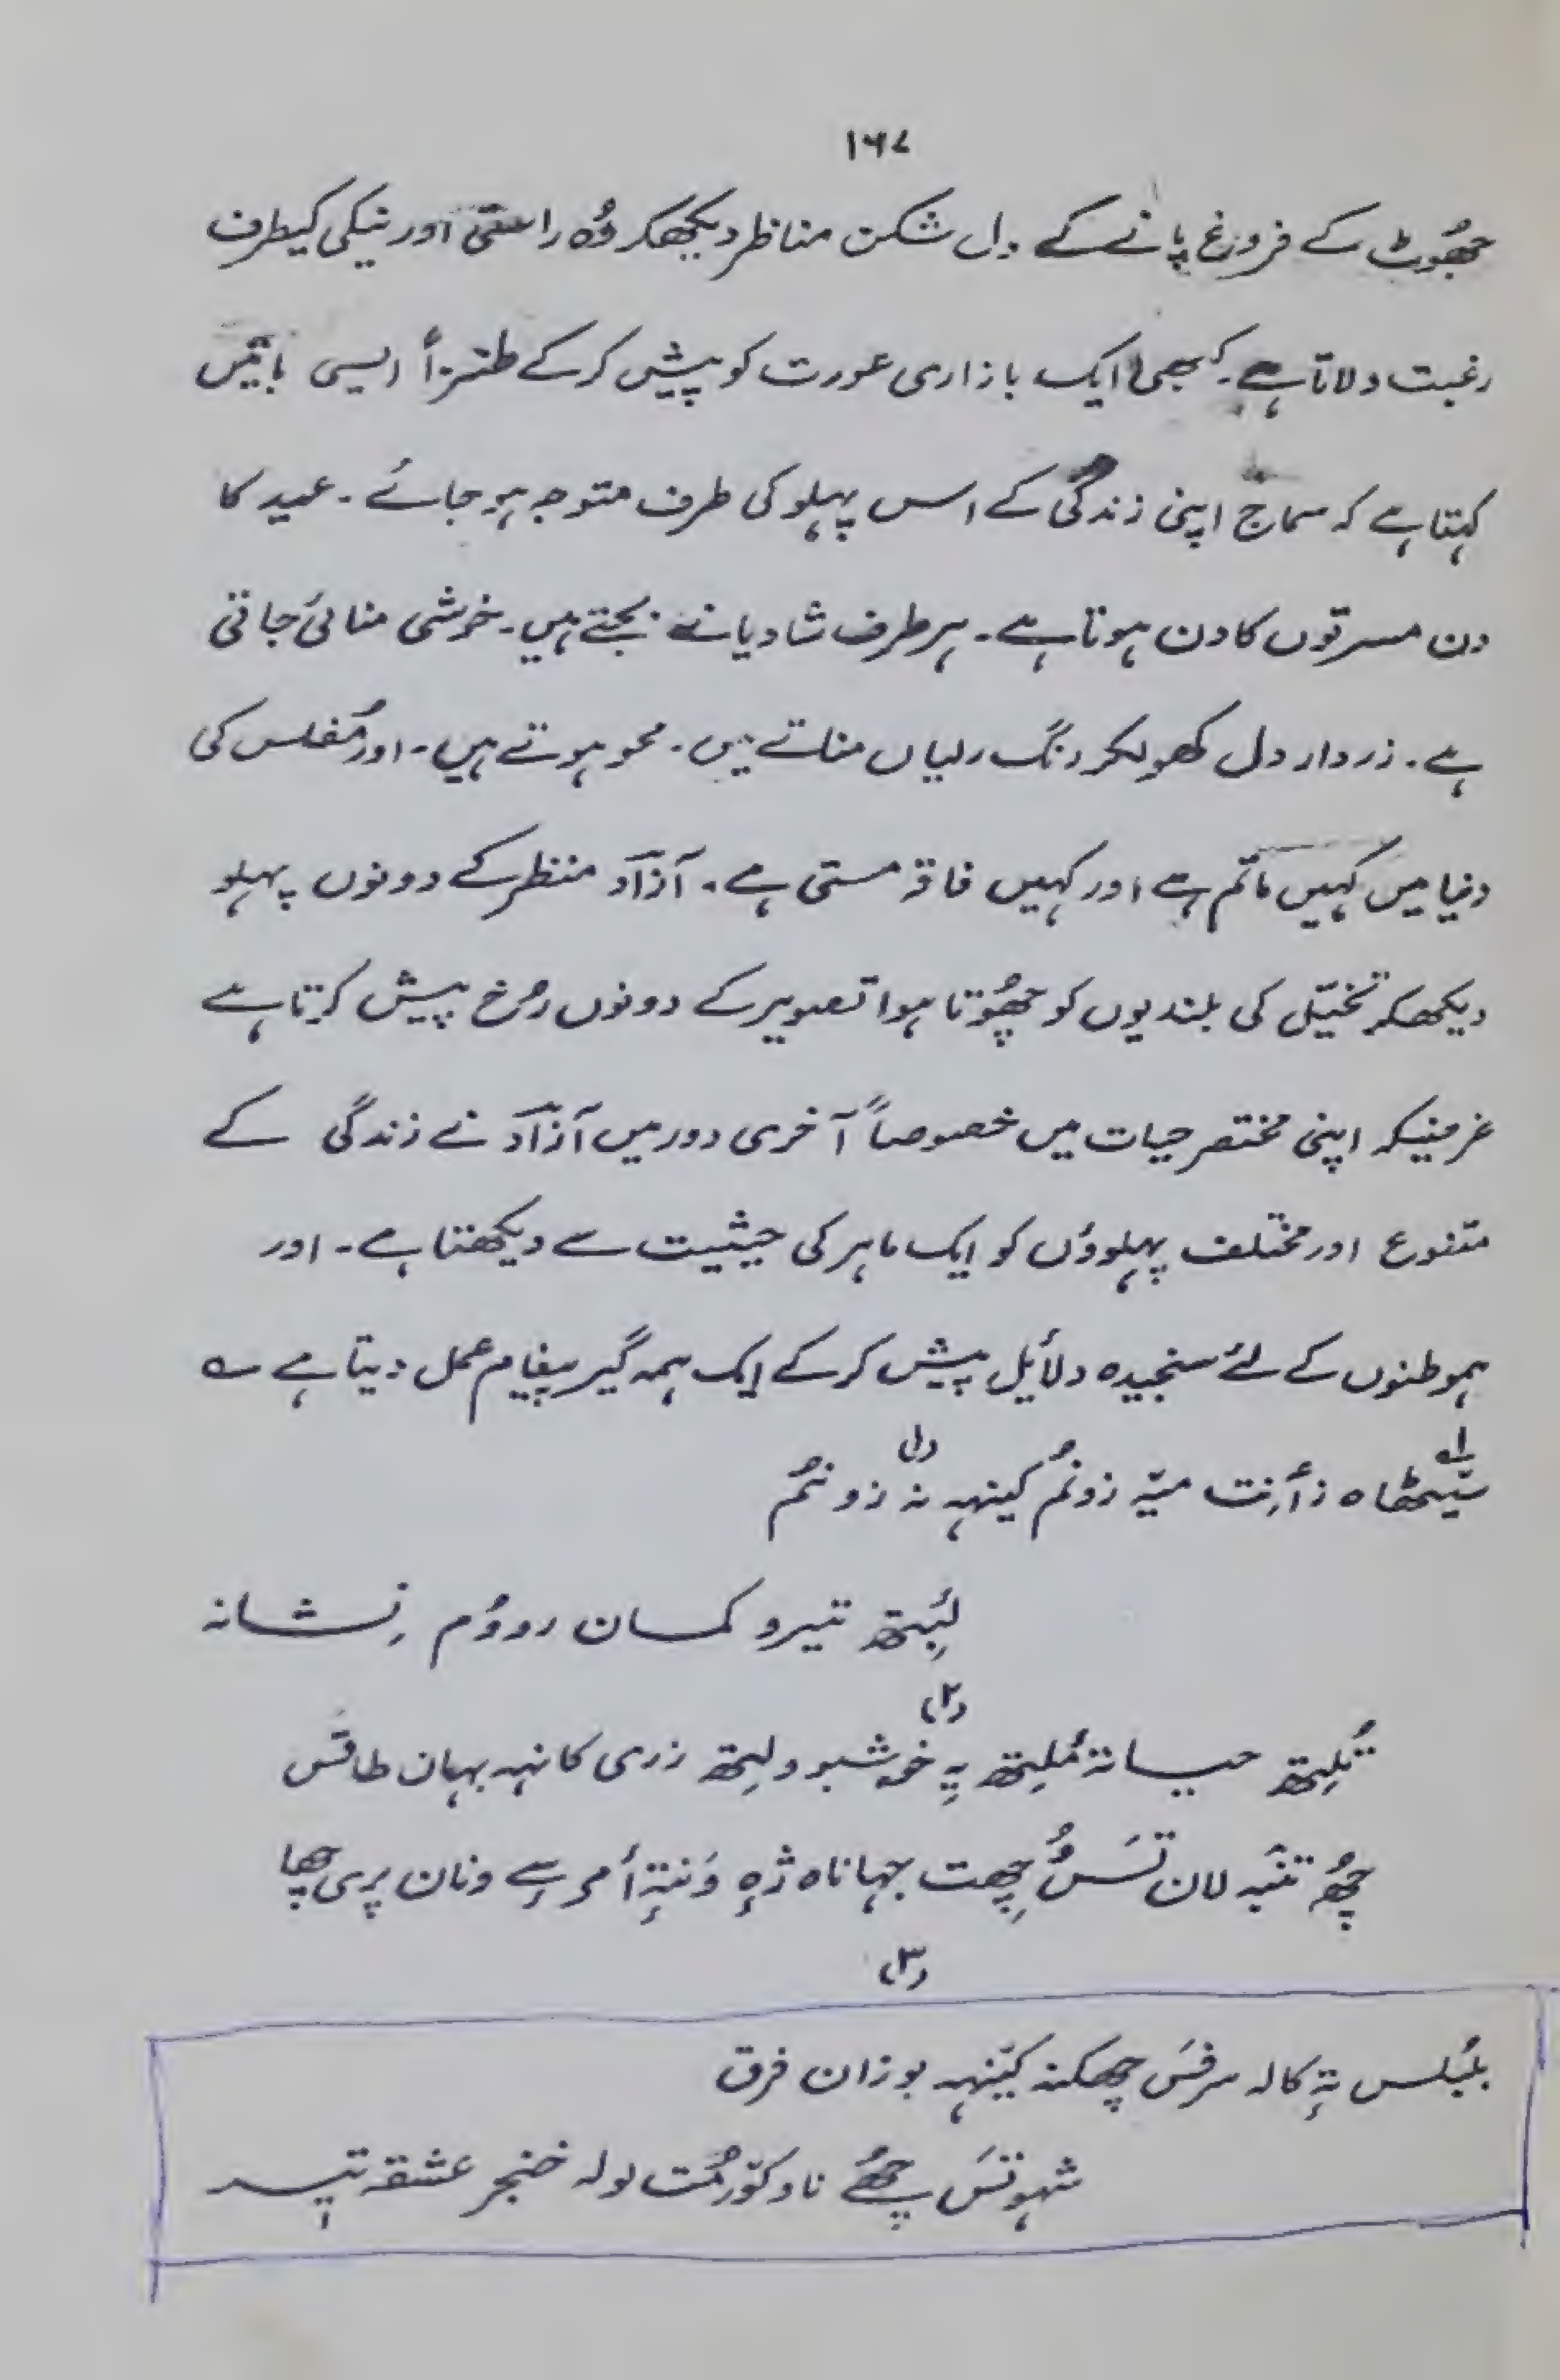 ۱۶۷
جھُوٹ کے فروغ پانے کے دل شکن مناظر دیکھکر وُہ راستی اور نیکی کیطرف
رغبت دلاتا ہے۔ کبھی ایک بازاری عورت کو پیش کرکے طنزاً ایسی باتیں
کہتا ہے کہ سماج اپنی زندگی کے اس پہلو کی طرف متوجہ ہو جائے ۔ عید کا
دن مسرتوں کا دن ہوتا ہے۔ ہر طرف شادیانے بجتے ہیں۔ خوشی منائی جاتی
ہے ۔ زردار دل کھولکر رنگ رلیاں مناتے ہیں ۔ محو ہوتے ہیں ۔ اور مُفلس کی
دنیا میں کہیں ماتم ہے اور کہیں فاقہ مستی ہے ۔ آزاد منظر کے دونوں پہلو
دیکھکر تخیّل کی بلندیوں کو چھُوتا ہوا تصویر کے دونوں رُخ پیش کرتا ہے
غرضیکہ اپنی مختصر حیات میں خصوصاً آخری دور میں آزاد نے زندگی کے
متنوع اور مختلف پہلوؤں کو ایک ماہر کی حیثیت سے دیکھتا ہے ۔ اور
ہموطنوں کے لئے سنجیدہ دلائیل پیش کرکے ایک ہمہ گیر پیغام عمل دیتا ہے ؎
(۱)
سیٹھاہ زأنِت میّہ زونُم کینہہ نہ زونُم
لبِتھ تیرو کمان رووُم نِشانہ
(۲)
تُلِتھ حیانہٕ مُلِتھ یہِ خوشبو ولِتھ زری کانہہ بہان طاقس
چھُہ تنہٕ لان تسُّ پِھت جہاناہ ژٕہ وَنتہٕ أمر سے ونان پری چھا
(۳)
بلبُلس تہٕ کالہ سرفس چھکنہ کینہہ بوزان فرق
شہوتَس چھُے ناو کورمُت لولہ خنجر عشقہ تیر